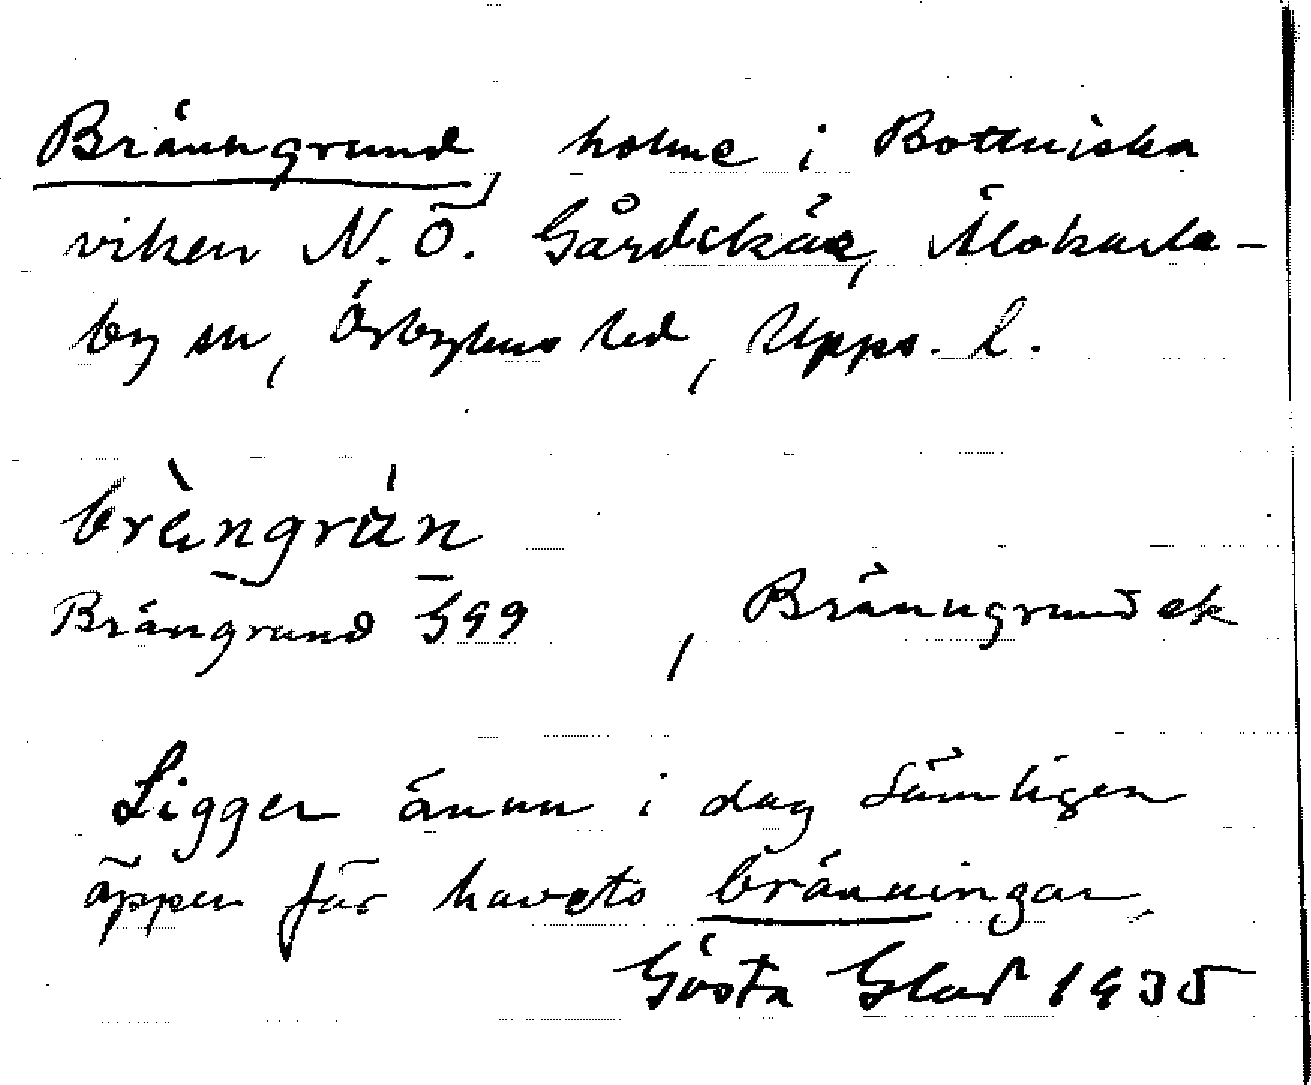 Bränngrund, holme i Bottniska
viken N.Ö. Gårdskär, Älvkarle-
by sn, Örbyhus hd, Upps. l.
brèngrún
Brängrund G99, Bränngrund ek
Ligger ännu i dag sämligen
öppen för havets bränningar,
Gösta Glad 1935